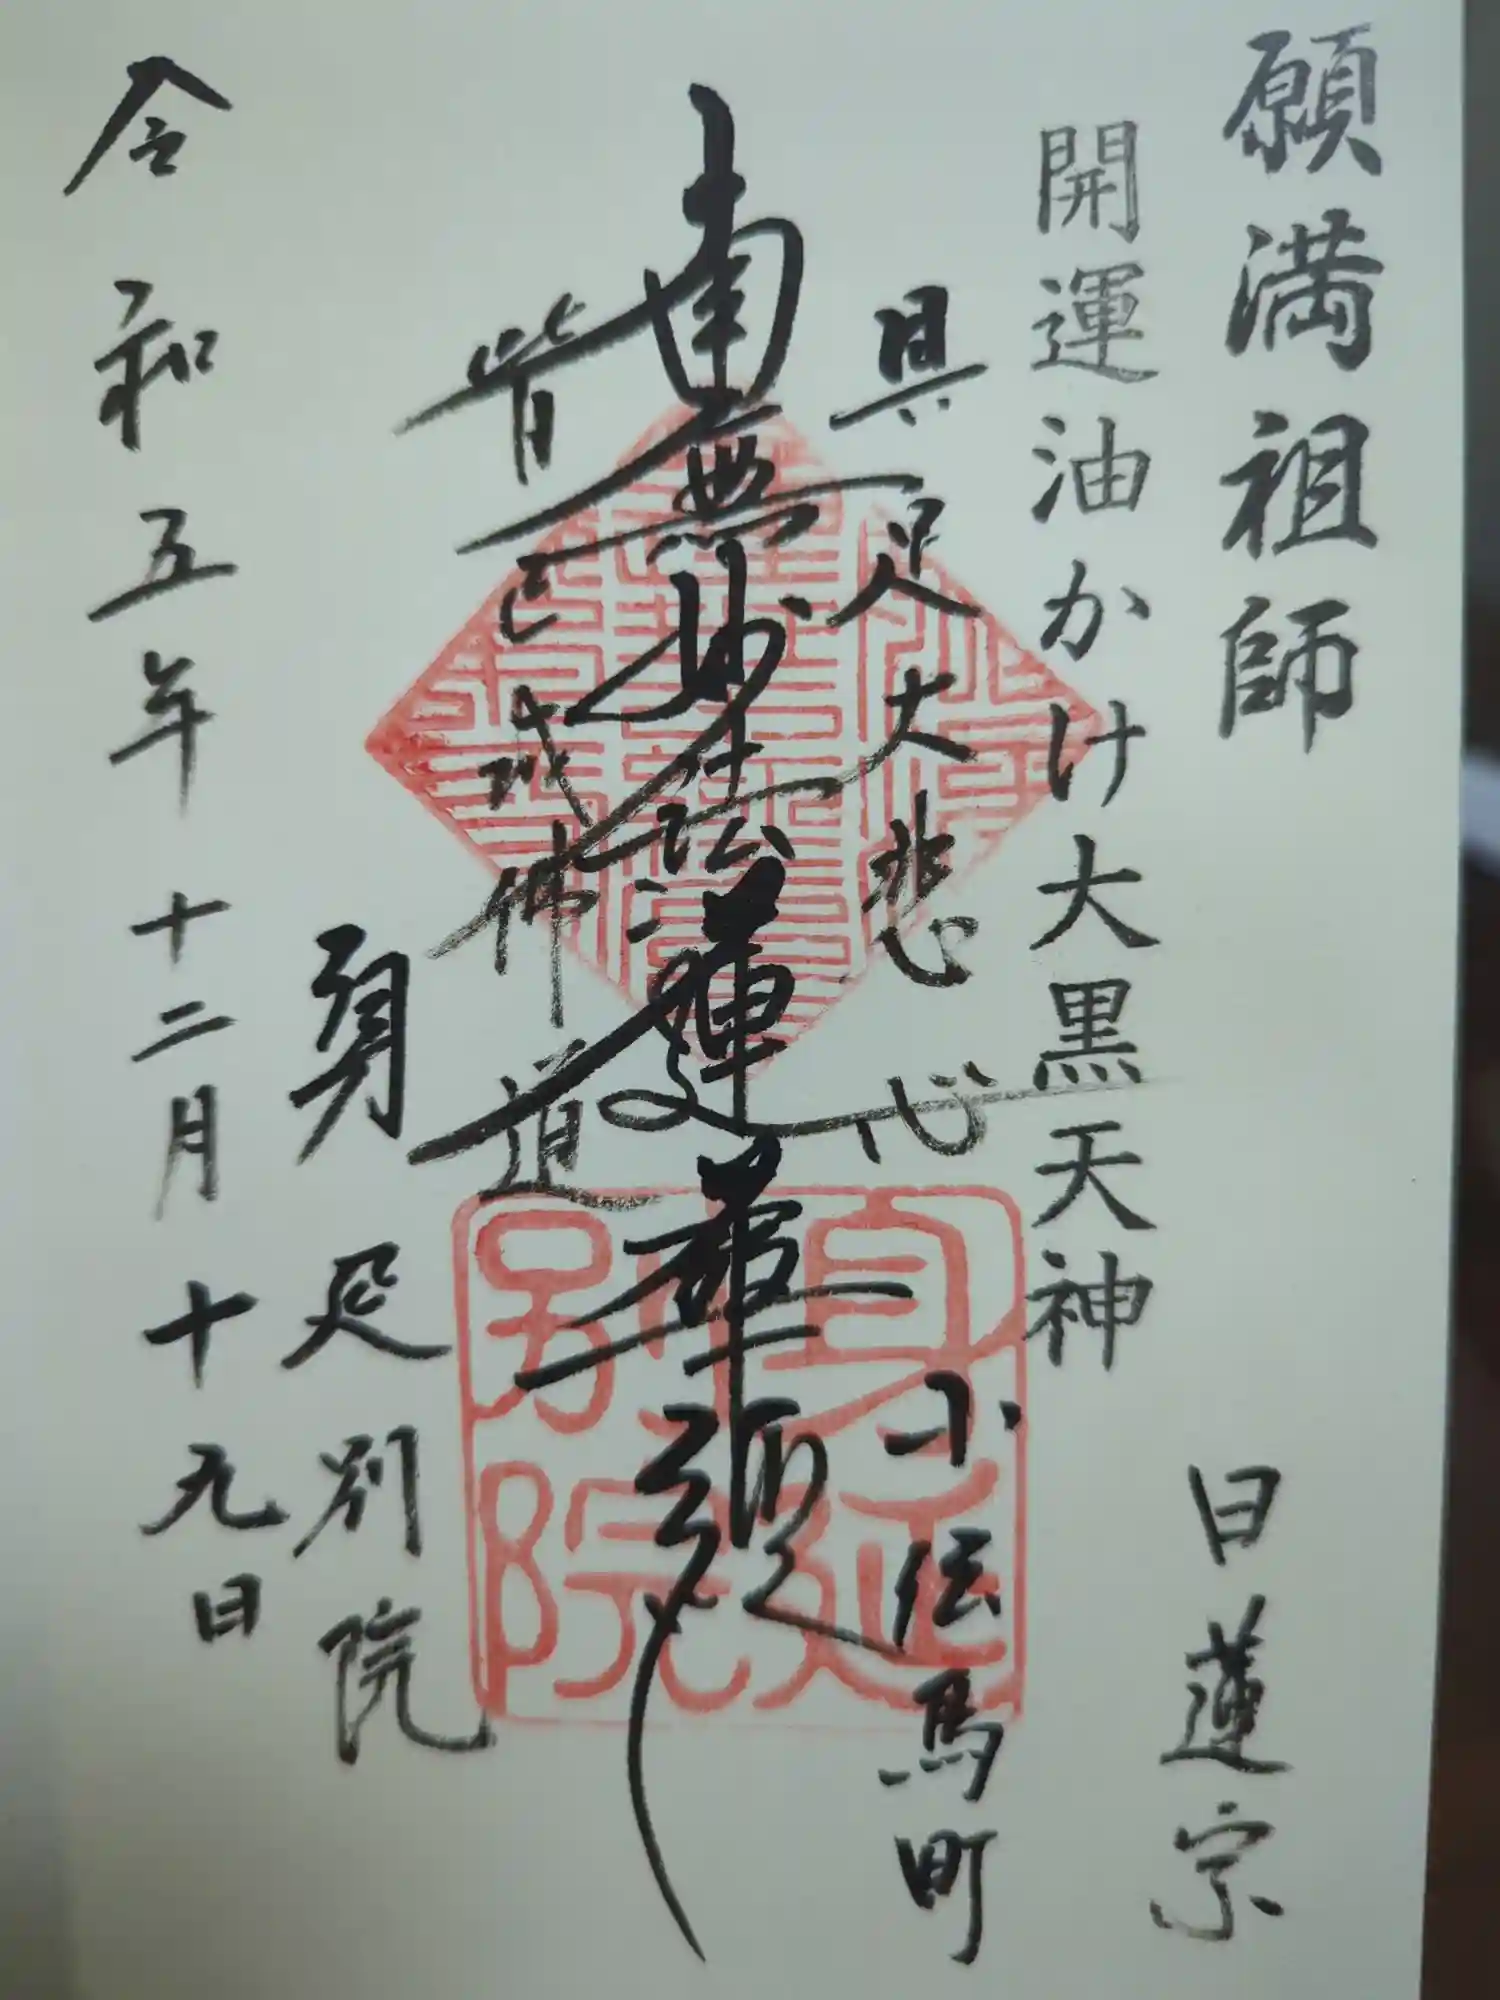 願満祖師
日蓮宗
開運油かけ大黒天神
具足大悲心
小伝馬町
南無妙法蓮華経
皆已成佛道
身延別院
令和五年十二月十九日
身延別院